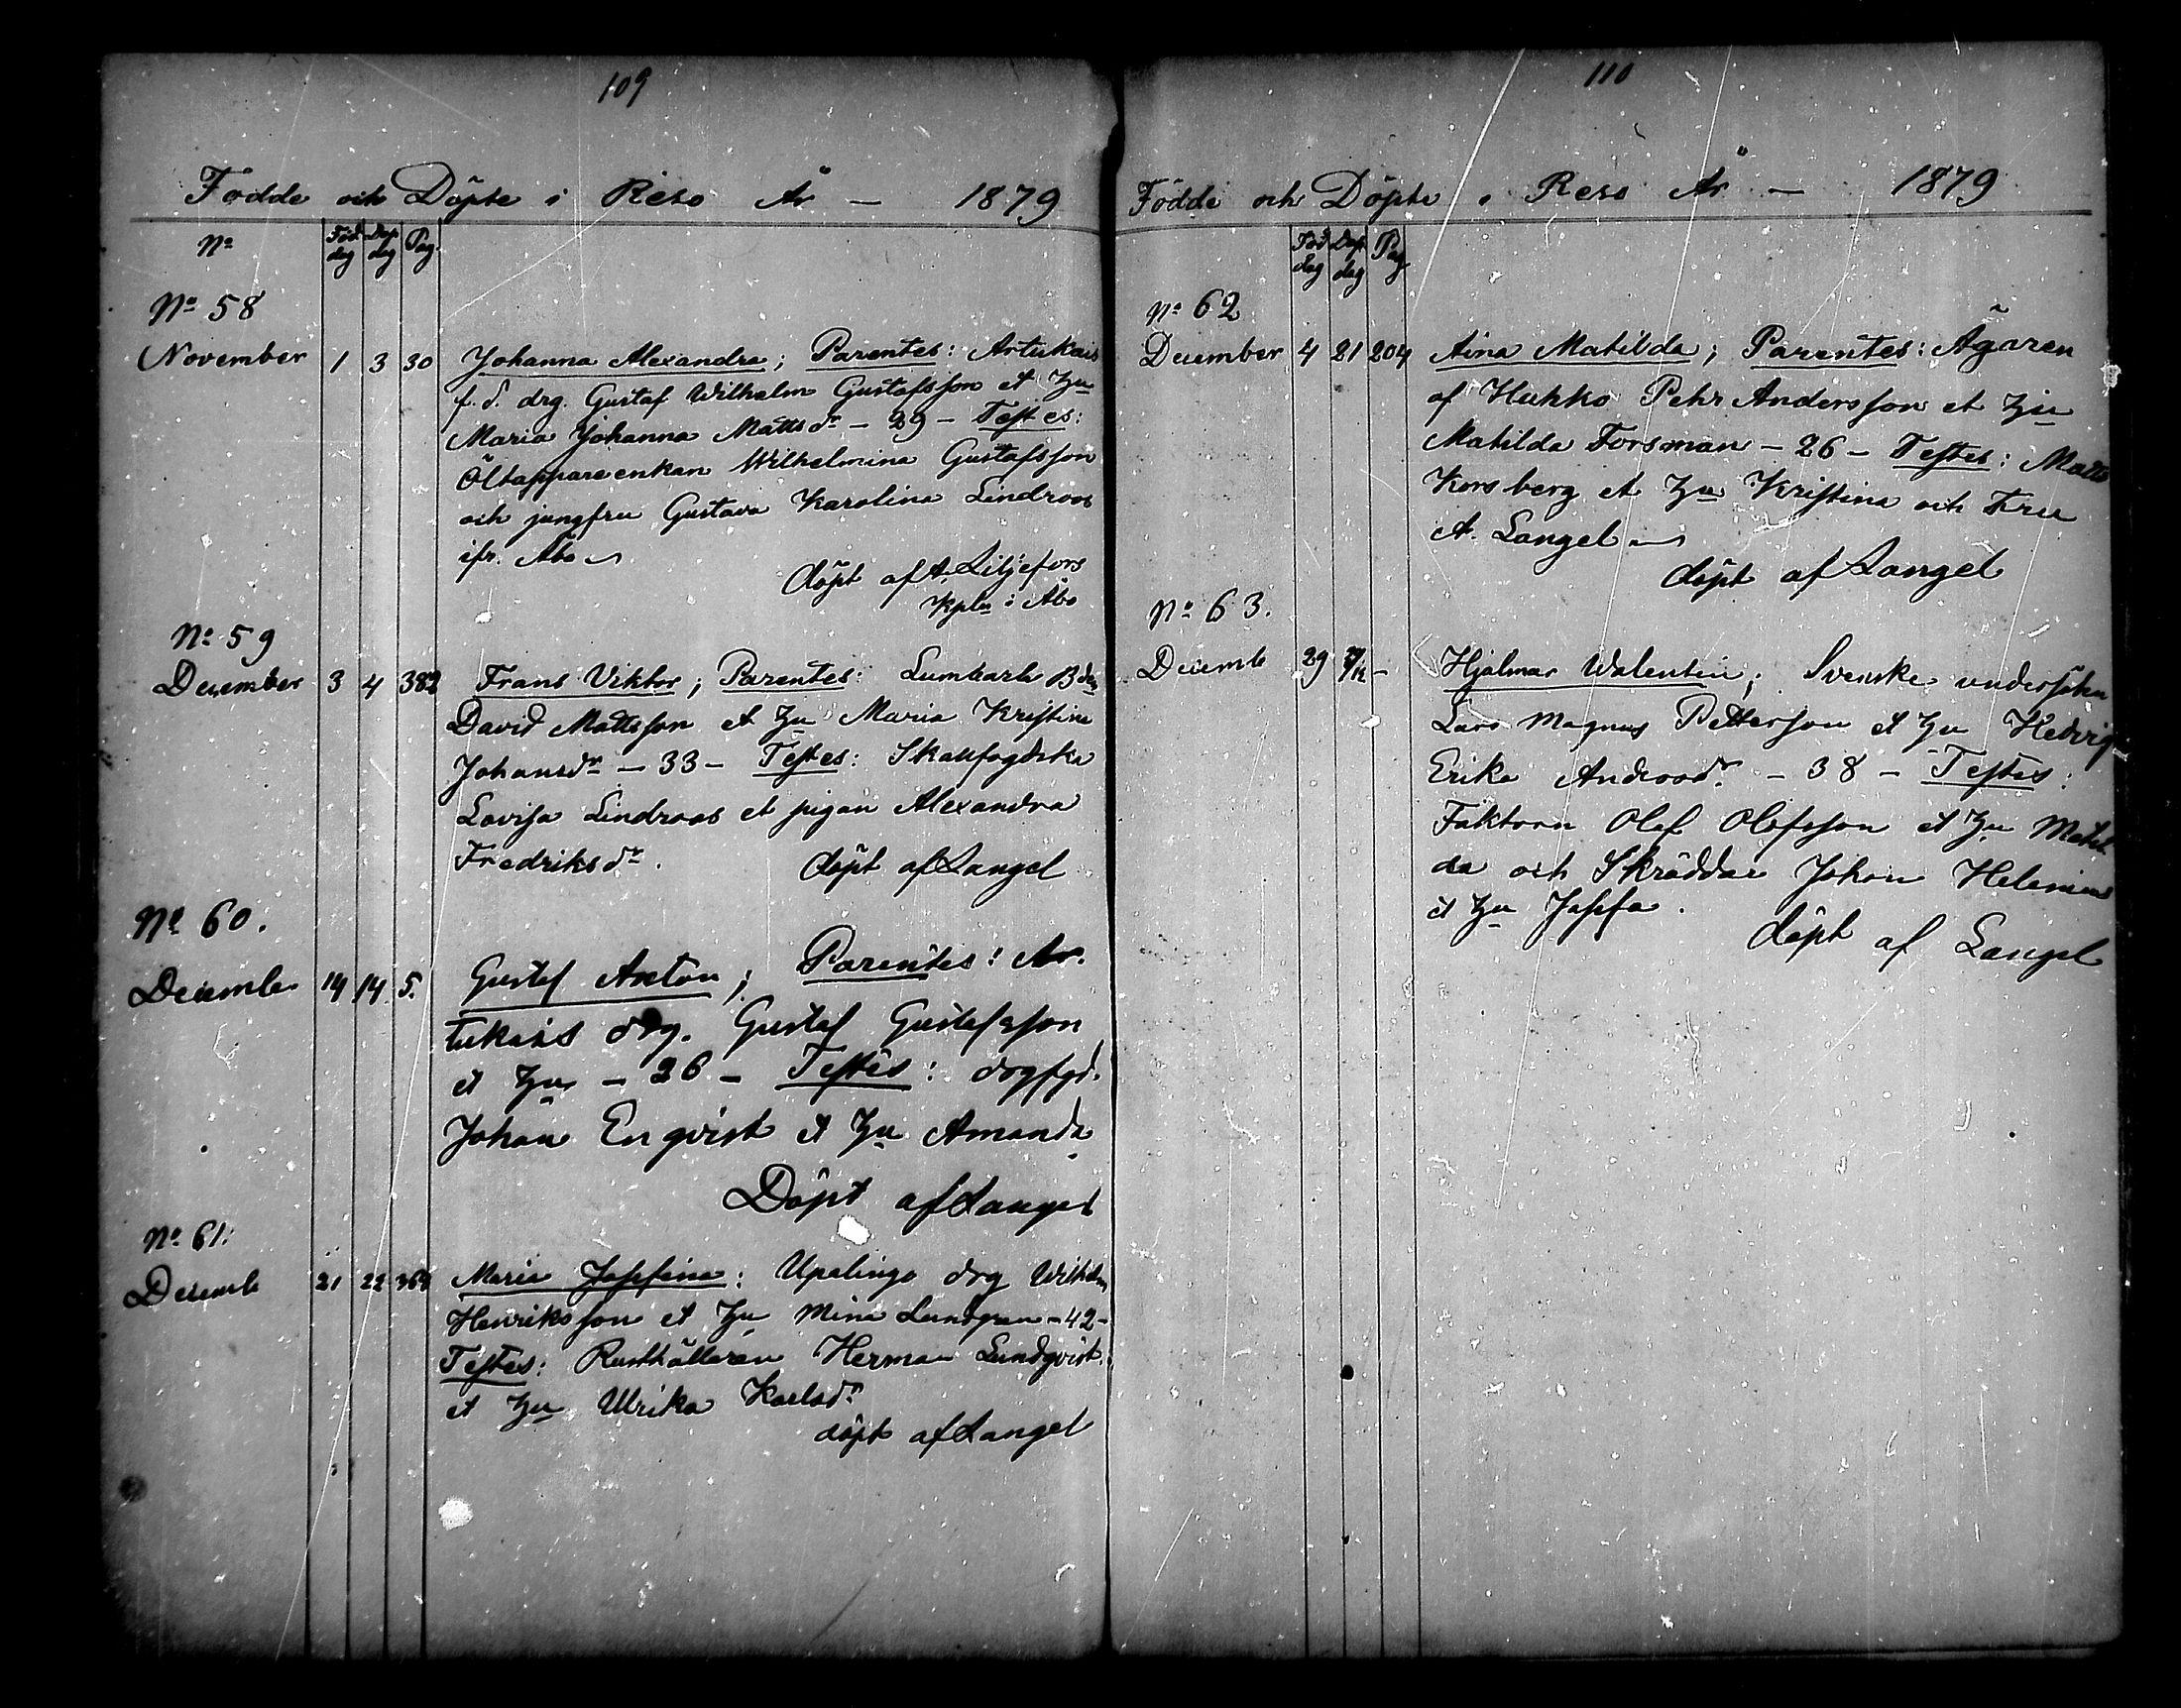 109
Födde och Döpte i Reso År — 1879
No Föd dag Dop dag Pag.
No 58
November 1 3 30 Johanna Alexandra; Parentes: Artukais
f. d. drg. Gustaf Wilhelm Gustafsson et Hu
Maria Johanna Mattsdr — 29 — Testes:
Öltappareenkan Wilhelmina Gustafsson
och jungfru Gustava Karolina Lindroos
ifr. Åbo
döpt af A. Liljefors
Kpln i Åbo
No 59
December 3 4 382 Frans Viktor; Parentes: Lumbarla
David Mattsson et Hu Maria Kristina
Johansdr — 33 — Testes: Skallfogdska
Lovisa Lindroos et pigan Alexandra
Fredriksdr.
döpt af Langel
No 60.
December 14 14 5. Gustaf Anton; Parentes: Ar-
tukais drg. Gustaf Gustafsson
et Hu — 26 — Testes: drgfgd.
Johan Enqvist et Hu Amanda
Döpt af Langel
No 61.
Decemb 21 22 369 Maria Josefina: Upalingo drg Wilhelm
Henriksson et Hu Mina Lundgren — 42 —
Testes: Rusthållaren Herman Lundqvist
et Hu Ulrika Karlsdr
döpt af Langel
110
Födde och Döpte i Reso År — 1879
Föd dag Dop dag Pag
No 62
December 4 21 204 Aina Matilda; Parentes: Ägaren
af Hukko Pehr Andersson et Hu
Matilda Forsman — 26 — Testes: Matts
Korsberg et Hu Kristina och Fru
A. Langel
döpt af Langel
No 63.
Decemb 29 — Hjalmar Walentin; Svenske undersåten
Lars Magnus Petterson et Hu Hedvig
Erika Andersdr. — 38 — Testes:
Faktorn Olof Olofsson et Hu Matil
da och Skräddar Johan Helenius
et Hu Josefa.
döpt af Langel